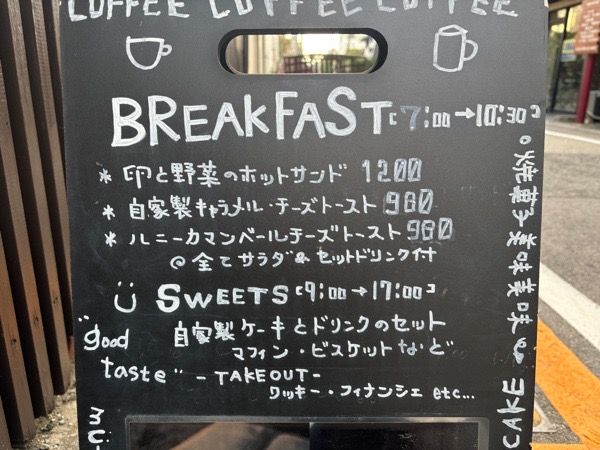 COFFEE COFFEE COFFEE
BREAKFAST [7:00→10:30]
* 卵と野菜のホットサンド 1200
* 自家製キャラメル・チーズトースト 980
* ハニーカマンベールチーズトースト 980
@ 全てサラダ&セットドリンク付
SWEETS [9:00→17:00]
自家製ケーキとドリンクのセット
マフィン・ビスケットなど
"good
taste"
-TAKEOUT-
クッキー・フィナンシェ etc...
焼菓子美味美味
CAKE